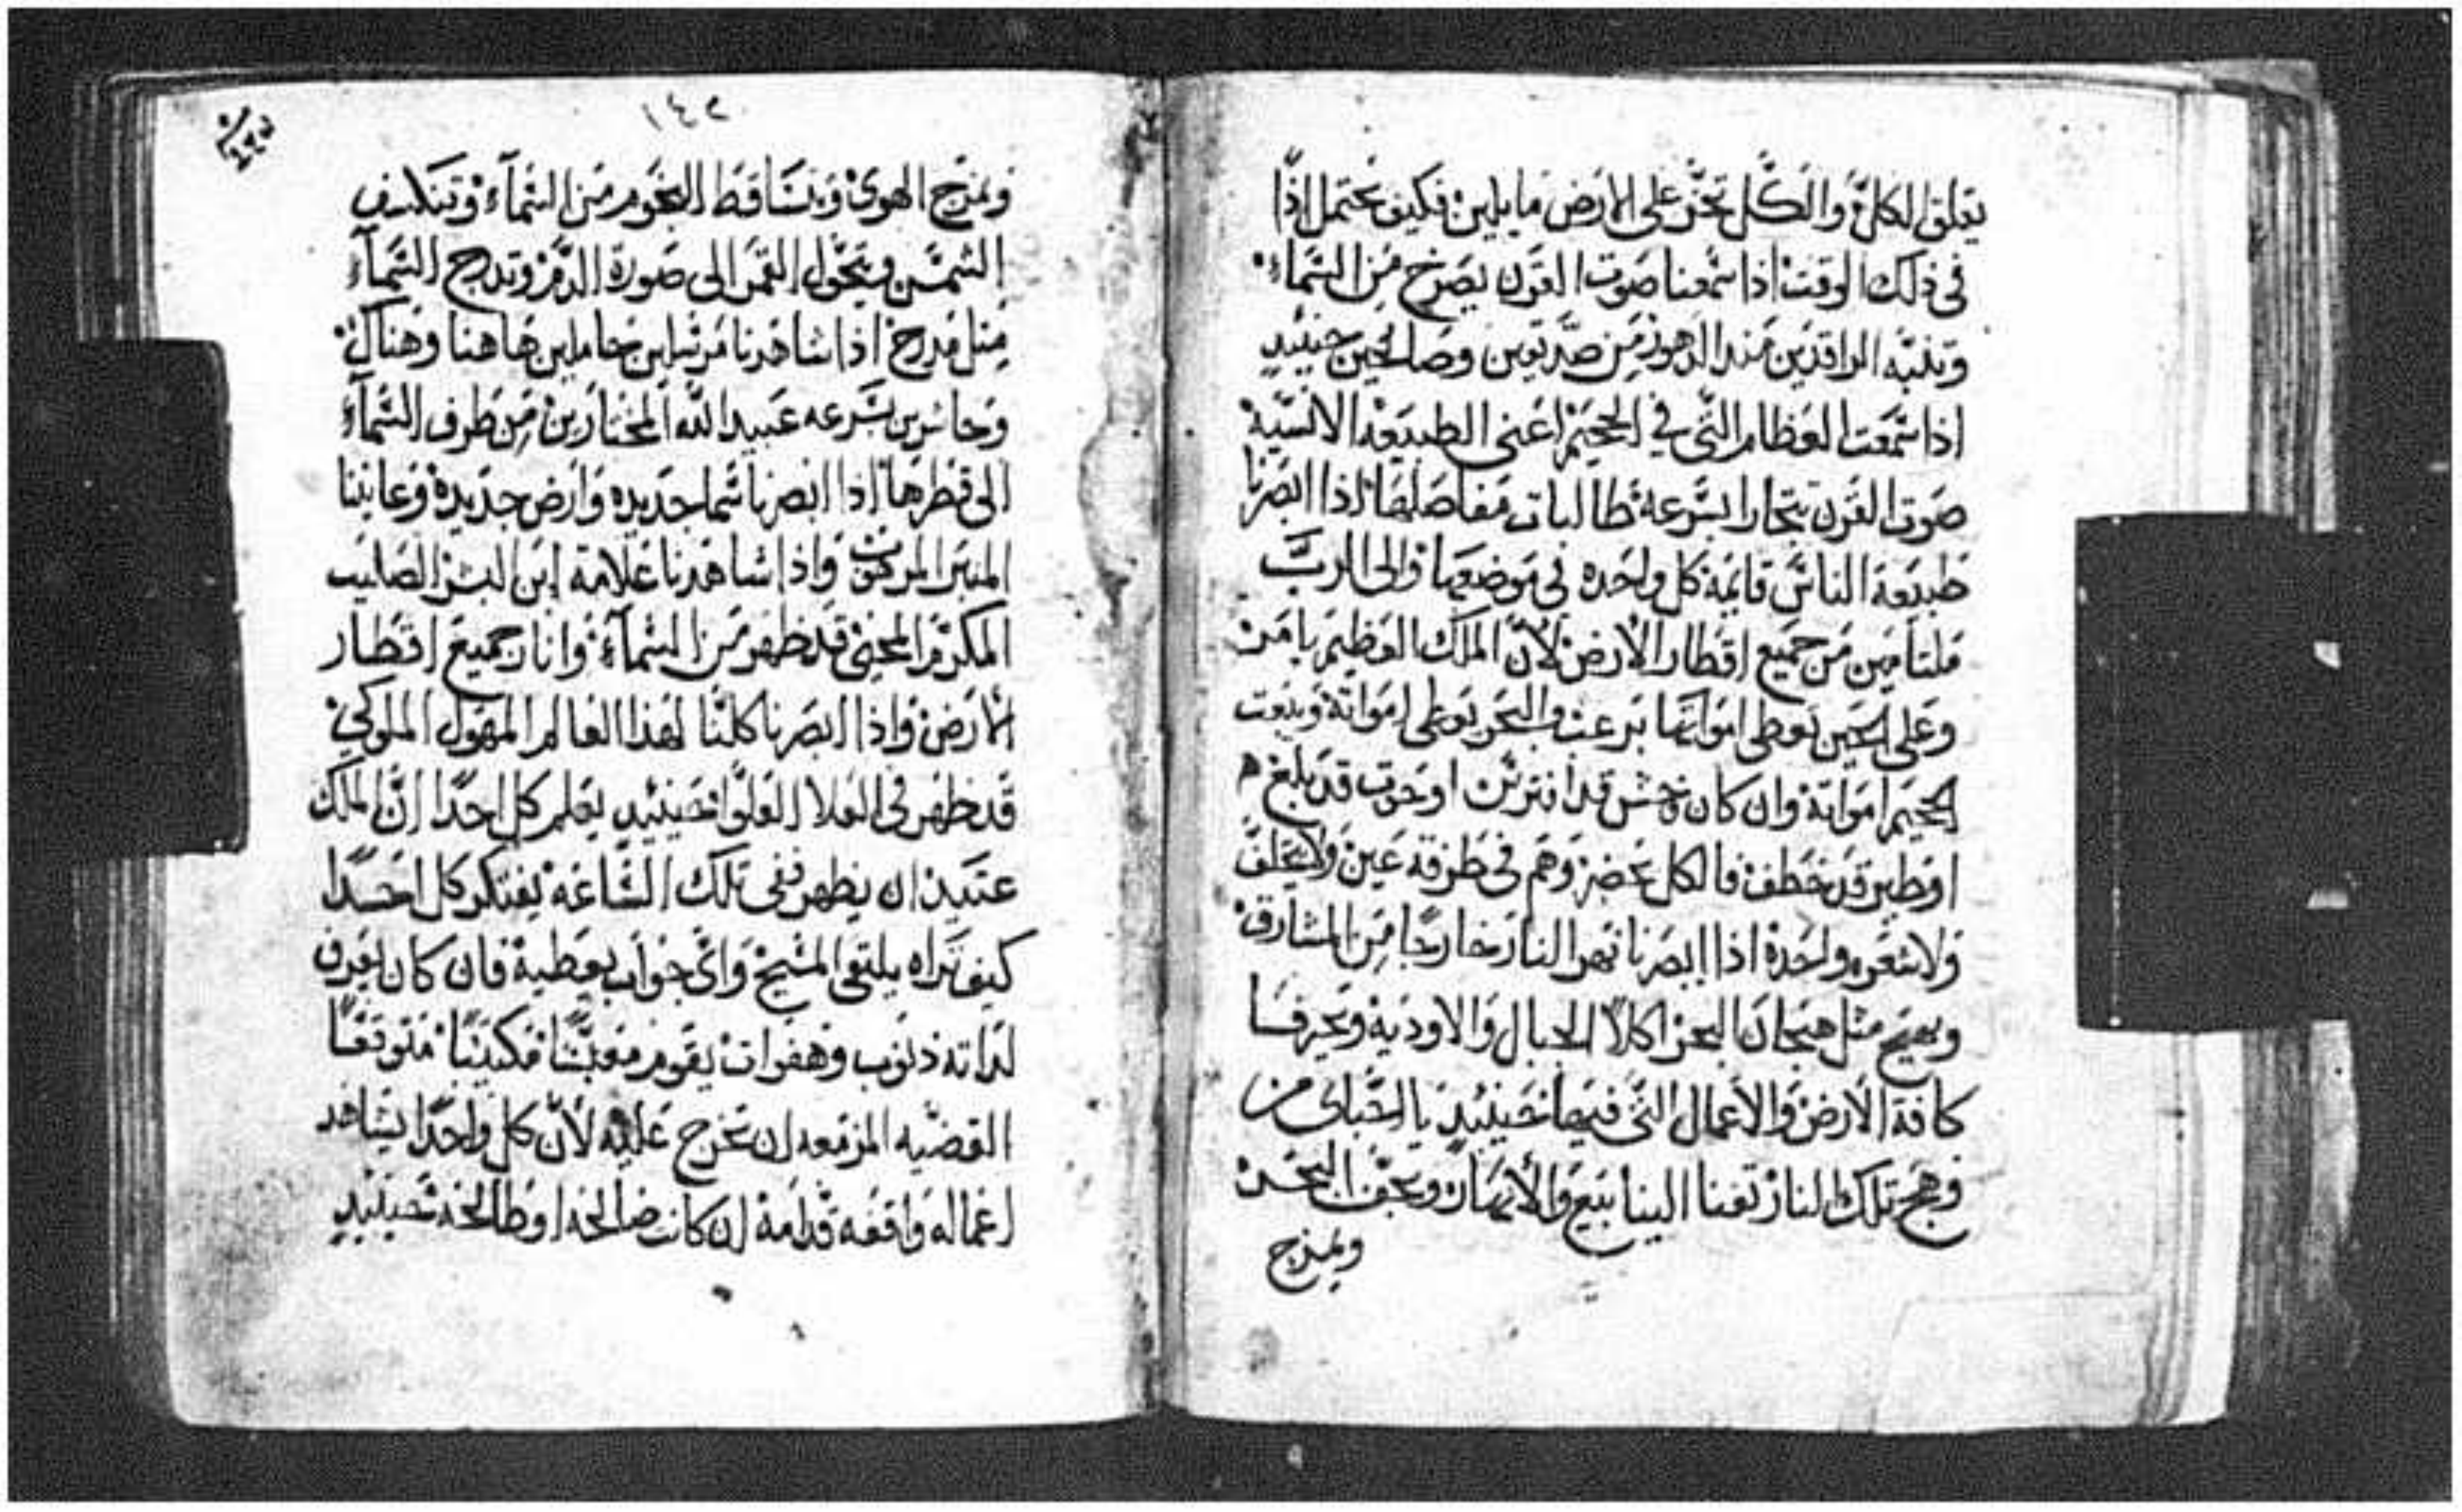 يغلق الكل والكل تخر على الارض مايلين فكيف نحتمل اذًا
في ذلك الوقت اذا سمعنا صوت القرن يصرخ من السماء
وتنبه الراقدين منذ الدهور من صديقين وصالحين حينيدٍ
اذا سمعت العظام التي في الجحيم اعني الطبيعة الانسية
صوت القرن بسرعة طالبات مفاصلها اذا ابصرنا
طبيعة الناس قايمة كل واحده في موضعها والى الرب
ملتامين من جميع اقطار الارض لان الملك العظيم يامر
وعلى الحين تعطي امواتها برعب والبحر يعطي امواتة ويبعت
الجحيم امواتة وان كان وحش قد افترس او حوت قد بلغ ه
او طير قد خطف فالكل تحضر وهم في طرفة عين ولا يتخلف
ولا شعره واحدة اذا ابصرنا نهر النار خارجا من المشارق
ويهيج مثل هيجان البحر اكلًا الجبال والاودية وتحرف
كافة الارض والاعمال التي فيها فحينيدٍ يا احباي من
وهج تلك النار تفنا الينابيع والانهار وتجف البحر
ويمزج
١٤٢
ويمزج الهوى وتتساقط النجوم من السماء وتنكسف
الشمس ويتحول القمر الى صورة الدم وتدرج السماء
مثل مدرج اذا شاهدنا مرسلين حاملين هاهنا وهناك
وحاشرين بسرعه عبيد الله المختارين من طرف السماء
الى قطرها اذا ابصرنا سما جديده وارض جديدة وعاينا
المنبر المرهوب واذا شاهدنا علامة ابن البشر الصليب
المكرم المحيي قد ظهر من السماء وانار جميع اقطار
الارض واذا ابصرنا كلنا لهذا العالم المهول الملوكي
قد ظهر في العلا العلو فحينيدٍ يعلم كل احدًا ان الملك
عتيد ان يظهر ففي تلك الساعة يفتكر كل احدًا
كيف تراه يلتقي المسيح واي جواب يعطية فان كان يعرف
لداتة ذنوب وهفوات يقوم معبسًا مكتيبًا متوقعًا
القضيه المزمعه ان تخرج عليه لان كل واحدًا يشاهد
اعماله واقفه قدامة ان كانت صالحه او طالحه فحينيدٍ